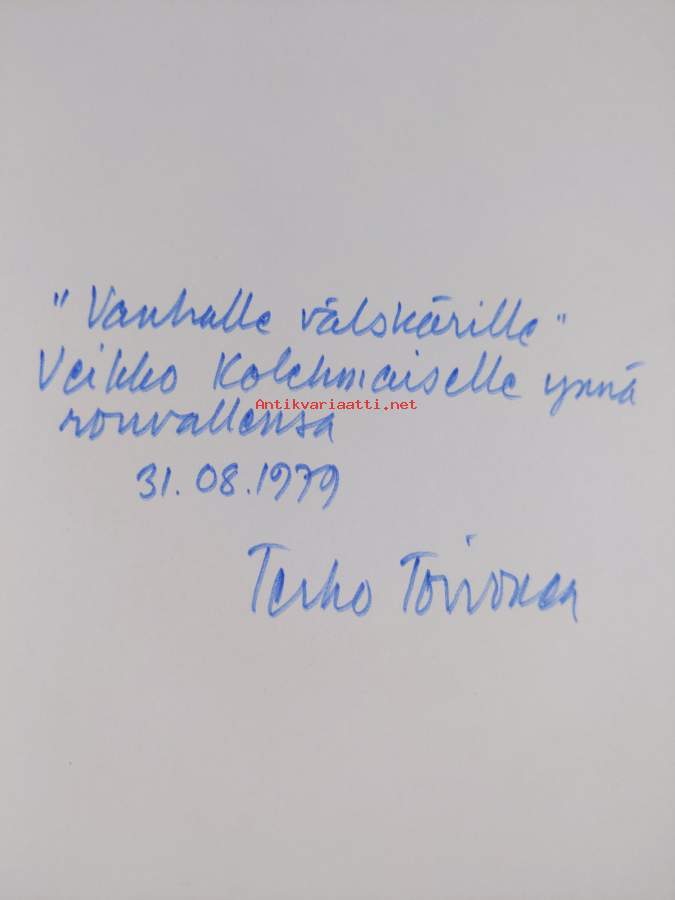 "Vanhalle välskärille"
Veikko Kolehmaiselle ynnä
Antikvariaatti.net
rouvallensa
31.08.1979
Terho Toivonen